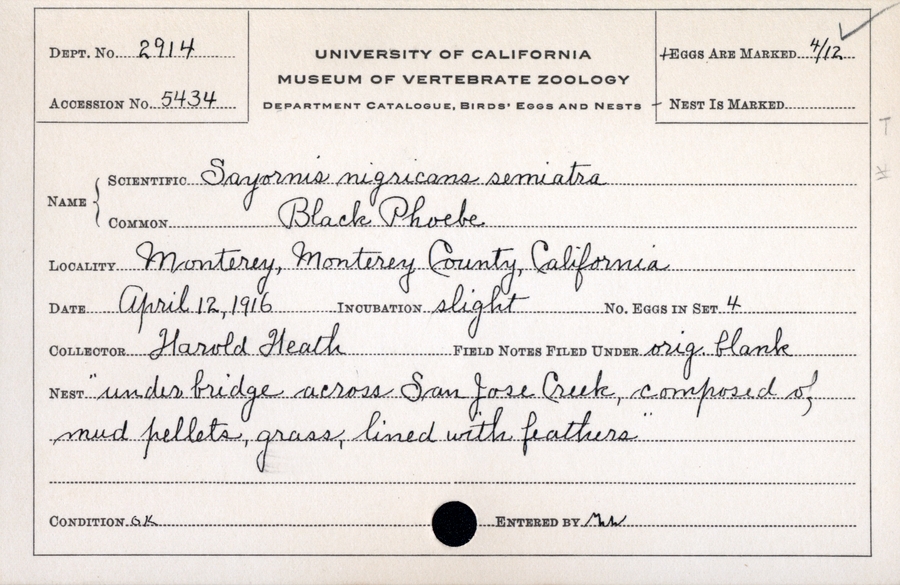 DEPT. No. 2914
UNIVERSITY OF CALIFORNIA
MUSEUM OF VERTEBRATE ZOOLOGY
DEPARTMENT CATALOGUE, BIRDS' EGGS AND NESTS
EGGS ARE MARKED 4/12
ACCESSION No. 5434
NEST IS MARKED
NAME
SCIENTIFIC Sayornis nigricans semiatra
COMMON Black Phoebe
LOCALITY Monterey, Monterey County, California
DATE April 12, 1916 INCUBATION slight No. EGGS IN SET 4
COLLECTOR Harold Heath FIELD NOTES FILED UNDER orig. blank
NEST "under bridge across San Jose Creek, composed of
mud pellets, grass, lined with feathers"
CONDITION OK ENTERED BY